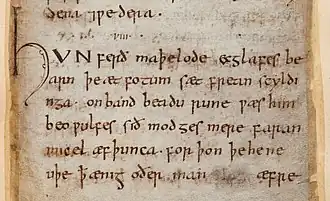 dena ⁊ ƿedera.
·viii·
HVN ferð maþelode ecglafes be
arn þe æt fotum sæt frean scyldi
nga. onband beadu rune ƿæs him
beo ƿulfes sið modges mere faran
micel æf þunca for þon þe he ne
uþe þ ænig oðer man æfre